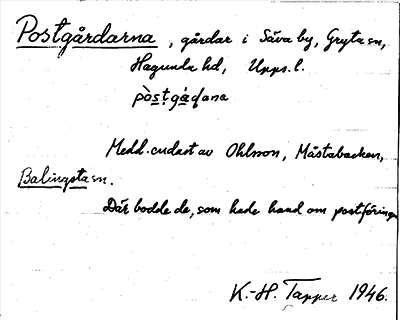 Postgårdarna, gårdar i Säva by, Gryta sn,
Hagunda hd, Upps. l.
pòstgá̀ḍana
Medd. endast av Ohlsson, Måstabacken,
Balingsta sn.
Där bodde de, som hade hand om postföringen
K.-H. Tapper 1946.